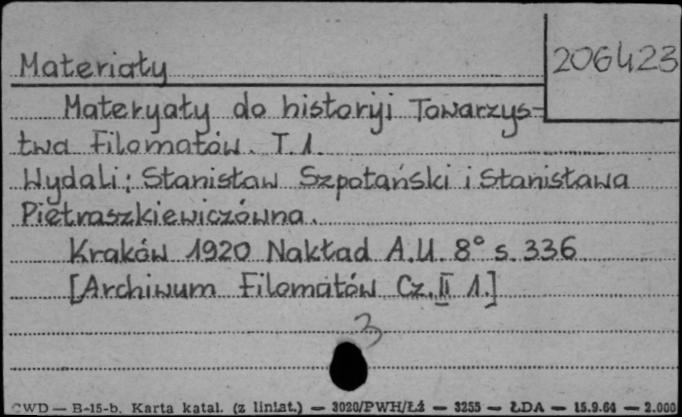 Materiały 206423
Materyały do historyi Towarzys-
twa Filomatów. T.1.
Wydali: Stanisław Szpotański i Stanisława
Pietraszkiewiczówna.
Kraków 1920 Nakład A.U. 8° s. 336
[Archiwum Filomatów Cz. II 1.]
3
CWD — B-15-b. Karta katal. (z liniat.) — 3020/PWH/Łż — 3255 — ŁDA — 15.9.64 — 2.000